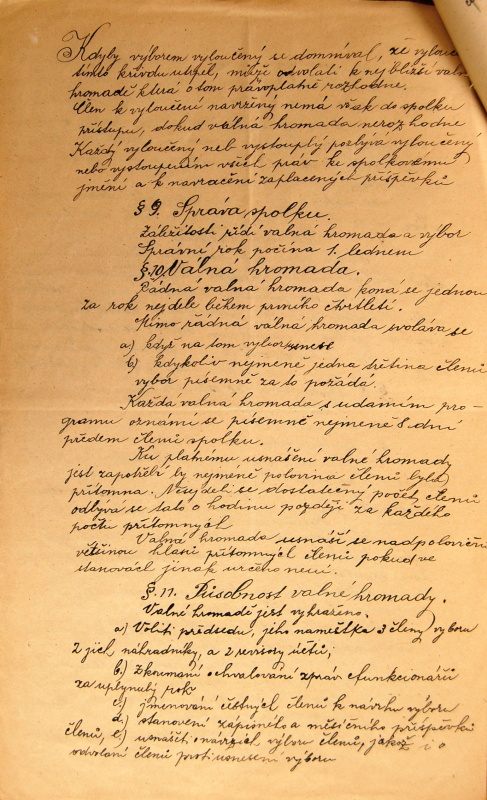 Kdyby výborem vyloučený se domníval, že vylouč
tímto křivdu utrpěl, může odvolati k nejbližší valn
hromadě která o tom právoplatně rozhodne.
Člen k vyloučení navržený nemá však do spolku
přístupu, dokud valná hromada nerozhodne
Každý vyloučený neb vystouplý pozbývá vyloučený
nebo vystoupením všech práv ke spolkovému
jmění a k navrácení zaplacených příspěvků
§ 9. Správa spolku.
Záležitosti řídí valná hromada a výbor
Správní rok počíná 1. lednem
§ 10. Valná hromada.
Řádná valná hromada koná se jednou
za rok nejdéle během prvního čtvrtletí.
Mimo řádná valná hromada svolává se
a) když na tom výbor
b) kdykoliv nejméně jedna třetina členů
výbor písemně za to požádá.
Každá valná hromada s udáním pro-
gramu oznámí se písemně nejméně 8 dní
předem členů spolku.
Ku platnému usnášení valné hromady
jest zapotřebí by nejméně polovina členů byla
přítomna. Nesejdeli se dostatečný počet členů
odbývá se tato o hodinu později za každého
počtu přítomných
Valná hromada usnáší se nadpoloviční
většinou hlasů přítomných členů pokud ve
stanovách jinak určeno není.
§. 11. Působnost valné hromady.
Valné hromadě jest vyhraženo.
a) Voliti předsedu, jeho náměstka 3 členy výboru
2 jich náhradníky, a 2 revisory účtů;
b.) Zkoumání schvalování zpráv funkcionářů
za uplynulý rok
c.) jmenování čestných členů k návrhu výboru
d. stanovení zápisného a měsíčního příspěvků
členů, e) usnášeti návrzích výboru členů, jakož i o
odvolání členů proti usnesení výboru